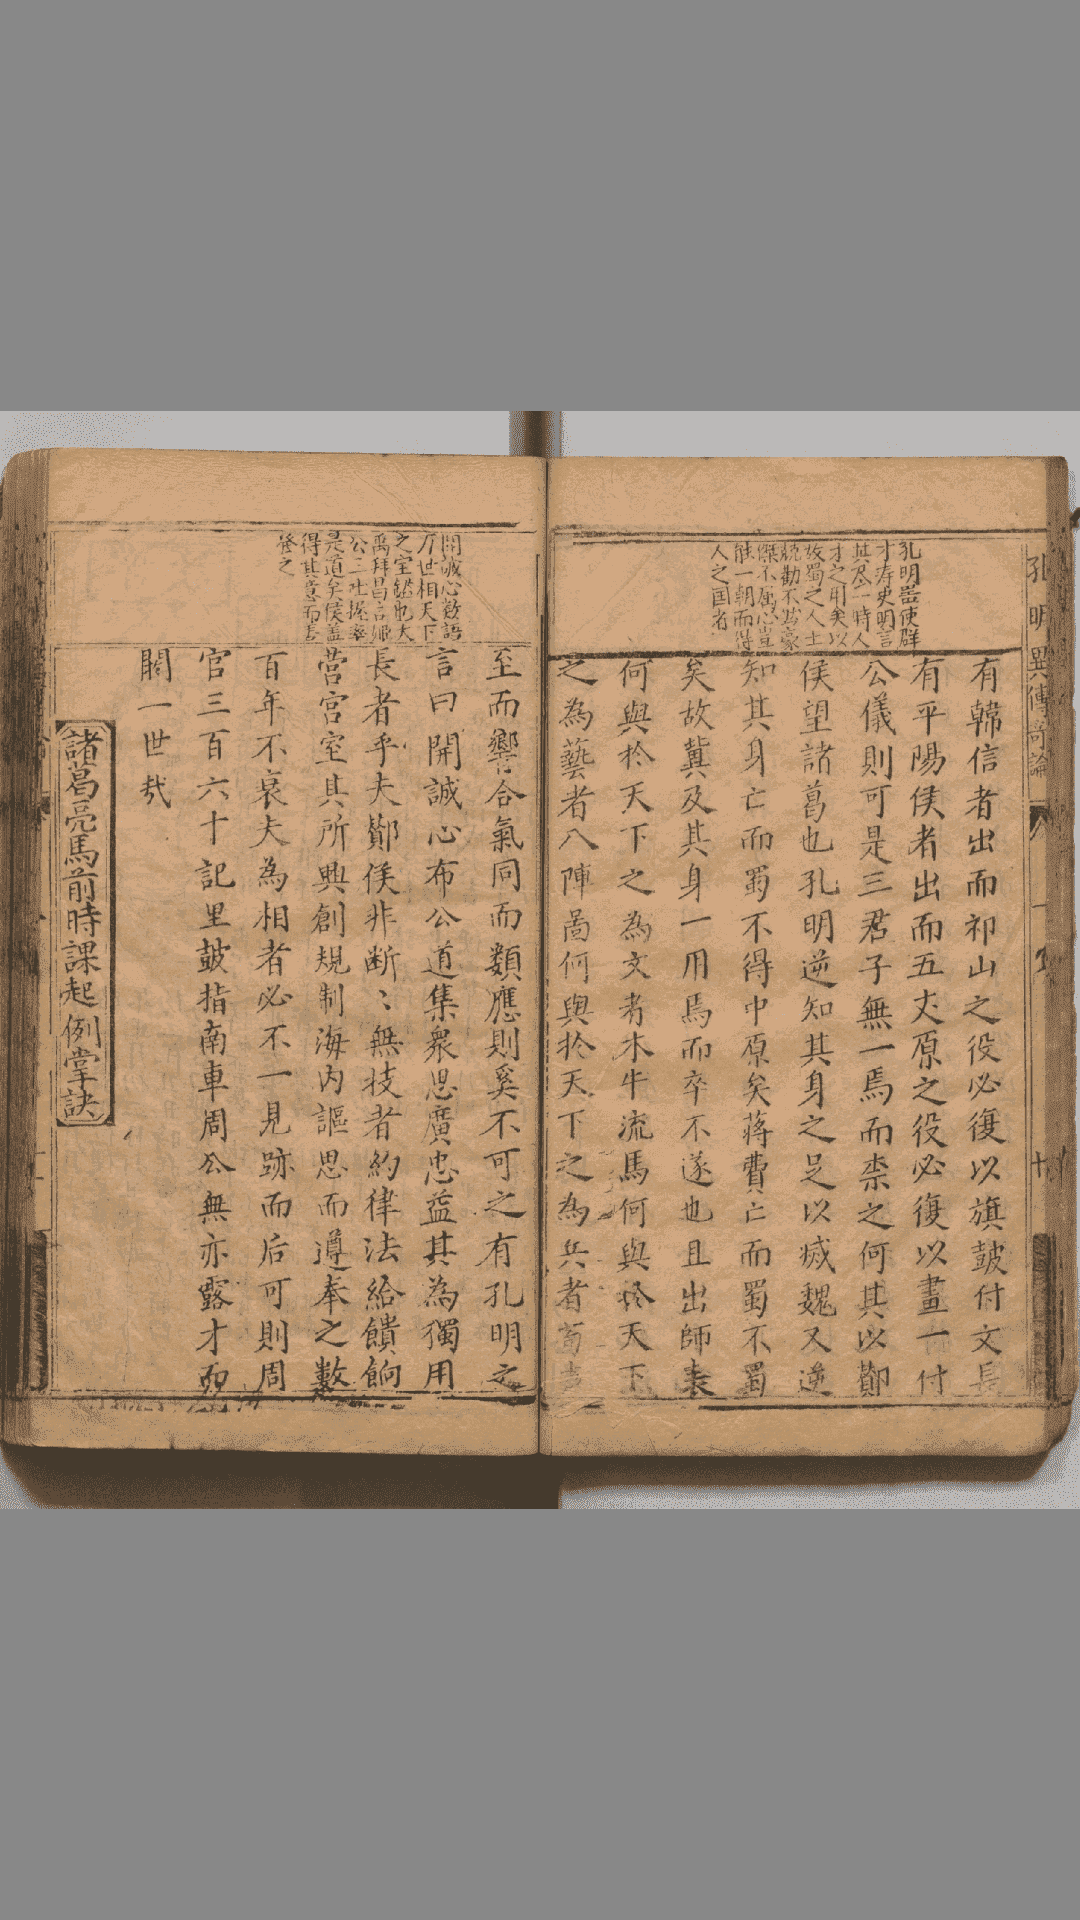 孔明異傳奇論
孔明豈使群
才寿史明言
其尽一時人
才之用矣以
故蜀之人士
競勸不為豪
傑不屈心豈
能一朝而得
人之国者
有韓信者出而祁山之役必復以旗鼓付文長
有平陽侯者出而五丈原之役必復以畫一付
公儀則可是三君子無一焉而柰之何其以鄼
侯望諸葛也孔明逆知其身之足以㓕魏又逆
知其身亡而蜀不得中原矣蔣費亡而蜀不蜀
矣故冀及其身一用焉而卒不遂也且出師表
何與於天下之為文者木牛流馬何與於天下
之為藝者八陣啚何與於天下之為兵者
開誠心数語
万世相天下
之室鑑也大
禹拜昌言姬
公三吐握率
是道矣侯盖
得其意而善
發之
至而響合氣同而類應則奚不可之有孔明之
言曰開誠心布公道集衆思廣忠益其為獨用
長者乎夫鄼侯非断〻無技者約律法給饋餉
营宫室其所興創規制海内謳思而遵奉之數
百年不衰夫為相者必不一見跡而后可則周
官三百六十記里鼓指南車周公無亦露才而
闊一世㢤
諸葛亮馬前時課起例掌訣